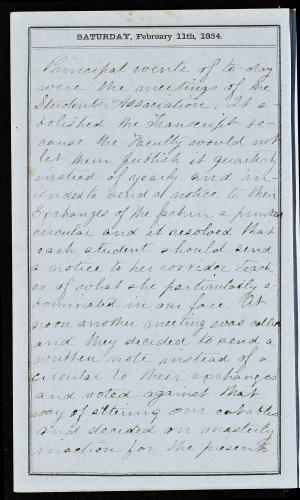 SATURDAY, February 11th, 1854.
Principal events of to-day
were the meetings of the
Students Association. It a-
bolished the Transcript be-
cause the Faculty would not
let them publish it quarterly
instead of yearly and in-
tended to send a notice to their
Exchanges of the fact in a printed
circular and it resolved that
each student should send
a notice to her corridor teach
er of what she particularly a-
bominated in our fare. At
noon another meeting was called
and they decided to send a
written note instead of a
circular to their exchanges
and voted against that
way of altering our eatables
and decided on masterly
inaction for the present.